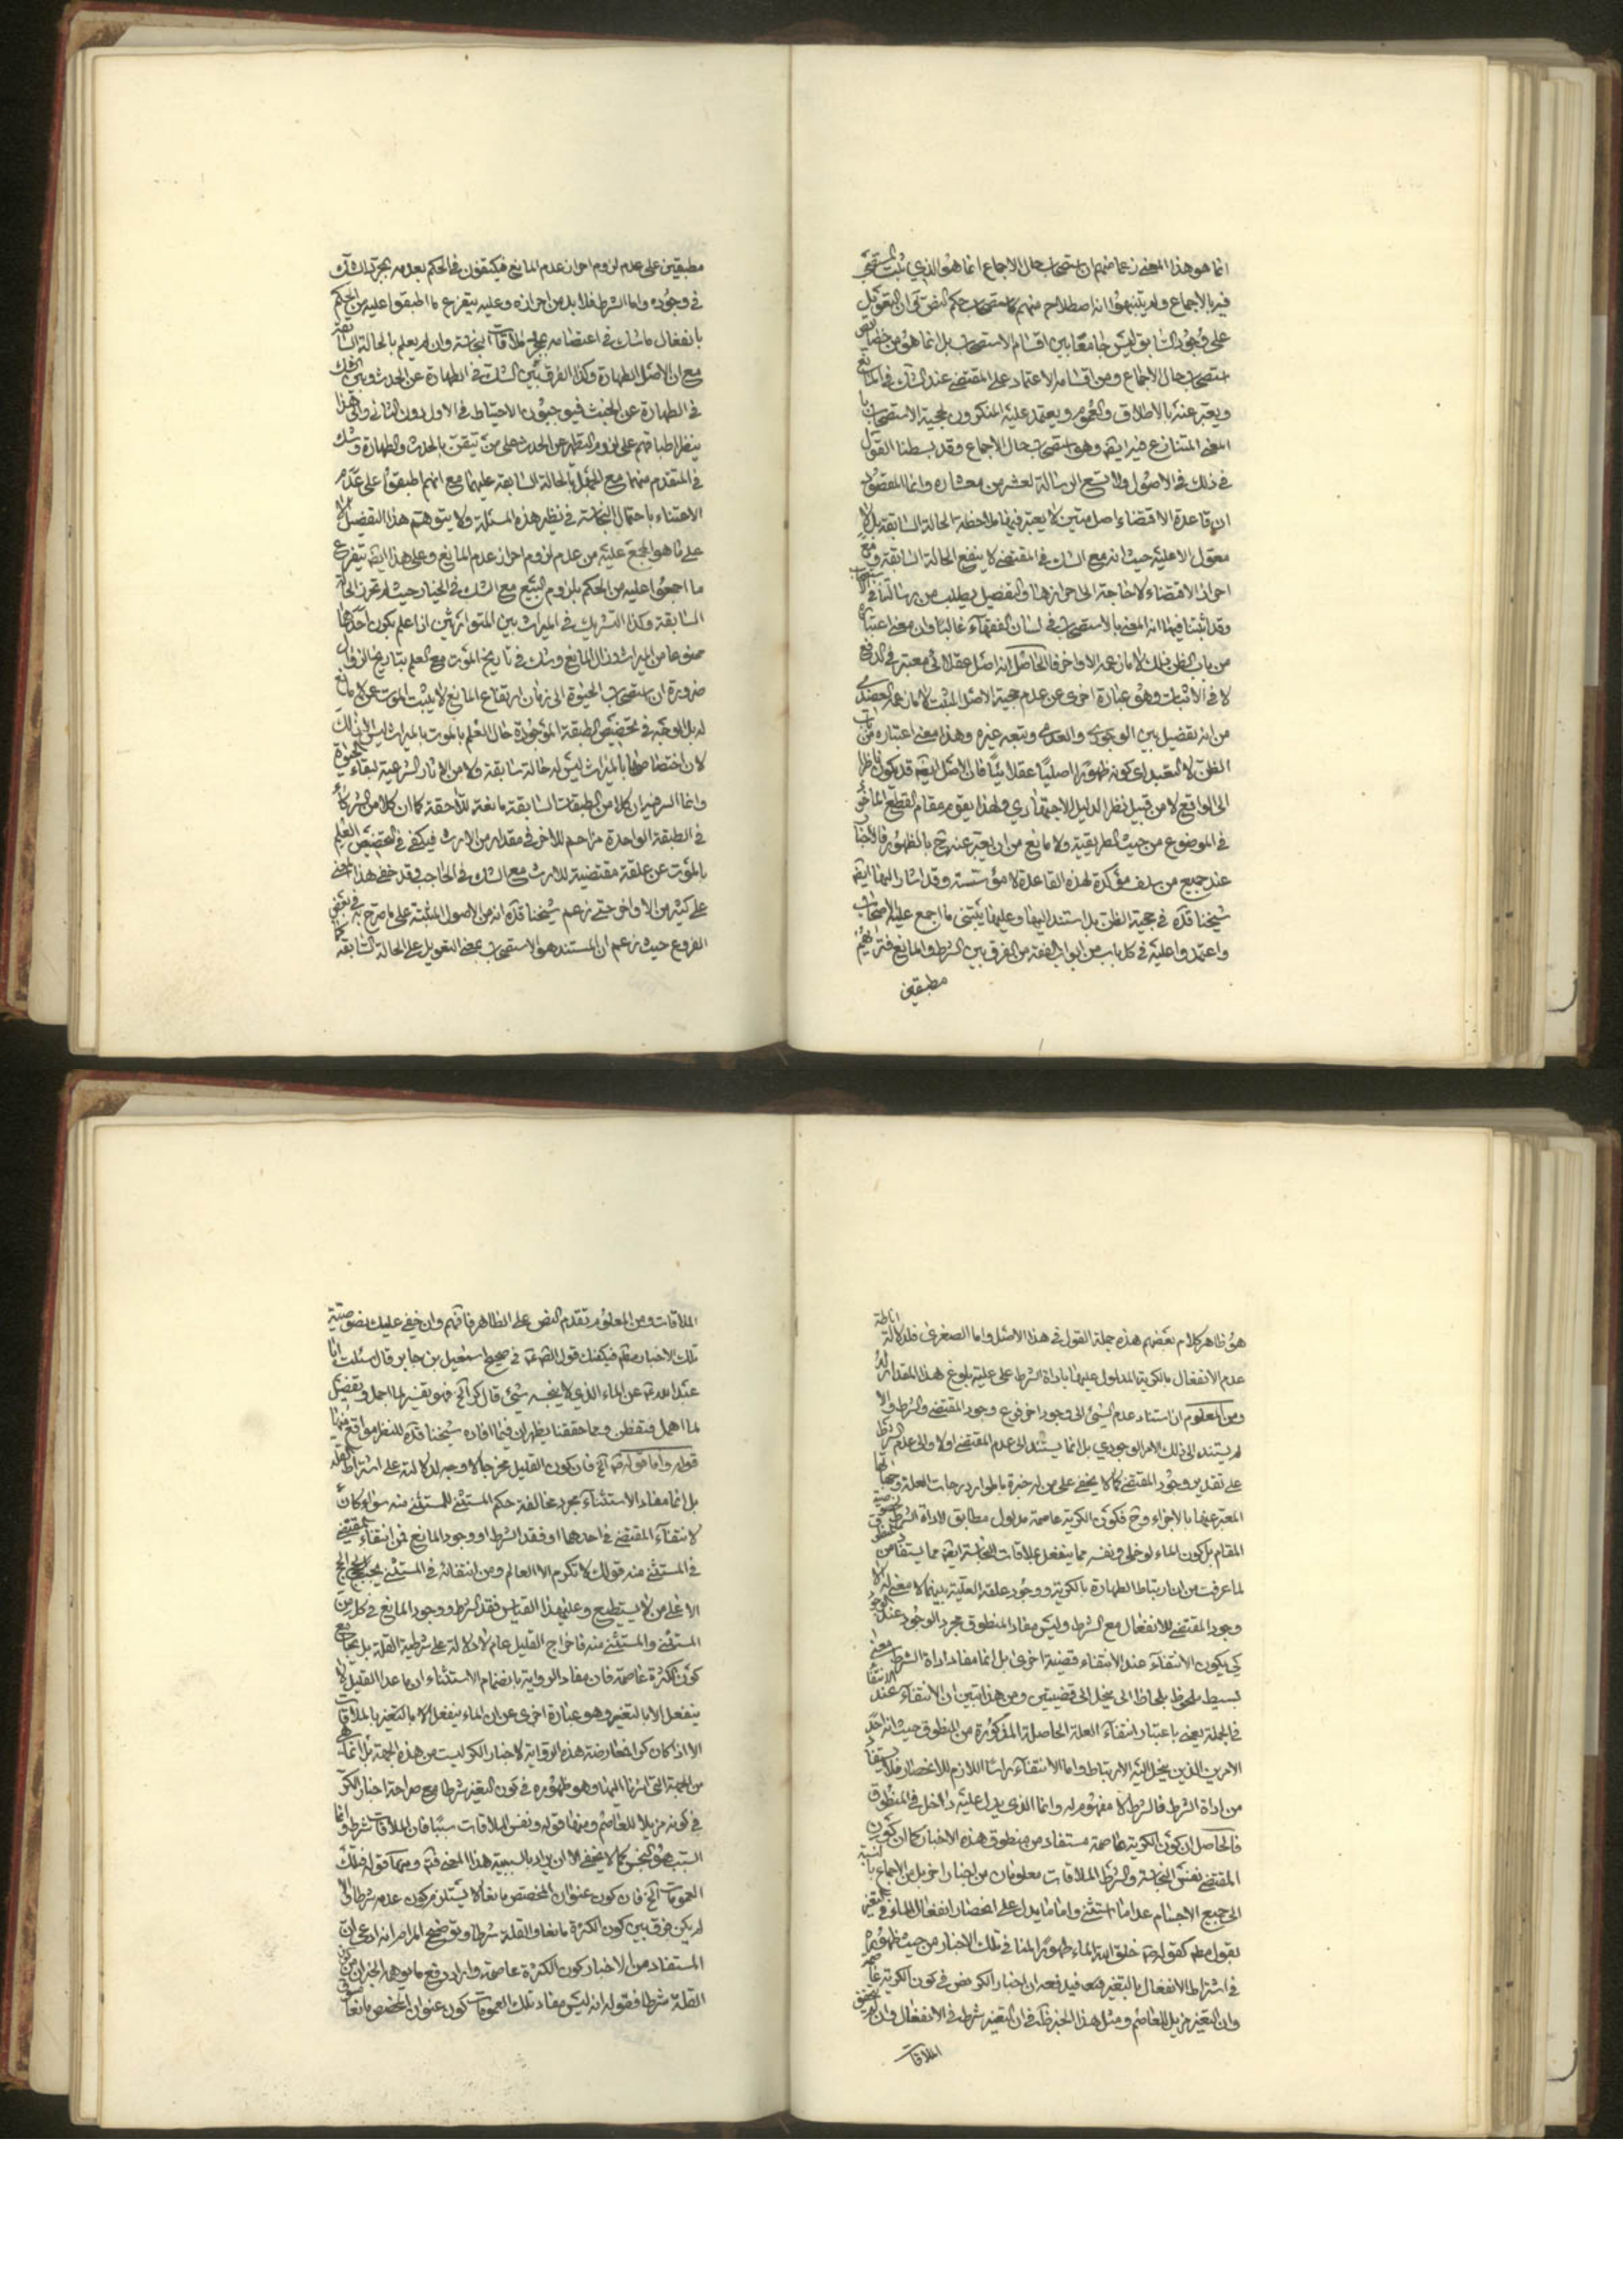 انما هو هذا المعنى زعما منهم ان استصحاب حال الاجماع انما هو الذي ثبت المستصحب
فيه بالاجماع ولم يتنبهوا انه اصطلاح منهم كاستصحاب حكم النص وان التعويل
على وجود السابق ليس جامعا بين اقسام الاستصحاب بل انما هو من خصايص
استصحاب حال الاجماع ومن اقسامه الاعتماد على المقتضي عند الشك في المانع
ويعبر عنه بالاطلاق والعموم ويعتمد عليه المنكرون لحجية الاستصحاب با
المعنى المتنازع فيه ايضا وهو استصحاب حال الاجماع وقد بسطنا القول
في ذلك في الاصول ولا تسع الرسالة لعشر من معشاره وانما المقصود
ان قاعدة الاقتضاء اصل متين لا يعتبر فيها ملاحظة الحالة السابقة بل لا
معقول الاعلية حيث انه مع الشك في المقتضي لا ينفع الحالة السابقة ومع
احراز الاقتضاء لا حاجة الى احرازها والتفصيل يطلب من رسالتنا في الاستصحاب
وقد اثبتنا فيها انه المعني بالاستصحاب في لسان الفقهاء غالبا وان معنى اعتباره
من باب الظن ذلك لا ما زعمه الاواخر فالحاصل انه اصل عقلائي معتبر في الدفع
لا في الاثبات وهو عبارة اخرى عن عدم حجية الاصل المثبت لا ما زعمه الحضدى
من انه تفصيل بين الوجودى والعدمى وتبعه غيره وهذا معنى اعتباره من باب
الظن لا التعبد اى كونه ظهورا اصليا عقلائيا فان الاصل ايضا قد يكون ناظرا
الى الواقع لا من قبيل نظر الدليل الاجتهادي ولهذا يقوم مقام القطع الماخوذ
في الموضوع من حيث الطريقية ولا مانع من ان يعبر عنه ح بالظهور فالاخبار
عند جميع من سلف مؤكدة لهذه القاعدة لا مؤسسة وقد اشار اليها ايضا
شيخنا قده في حجية الظن بل استند اليها وعليها يبتني ما اجمع عليه الاصحاب
واعتمدوا عليه في كل باب من ابواب الفقه من الفرق بين الشرط والمانع فتراهم
مطبقين
مطبقين على عدم لزوم احراز عدم المانع فيكتفون في الحكم بعدمه بمجرد الشك
في وجوده واما الشرط فلا بد من احرازه وعليه يتفرع ما اطبقوا عليه من الحكم
بانفعال ماشك في اعتصامه بمجرد ملاقات النجاسة وان لم يعلم بالحالة السابقة
مع ان الاصل الطهارة وكذا الفرق بين الشك في الطهارة عن الحدث وبين الشك
في الطهارة عن الخبث فيوجبون الاحتياط في الاول دون الثاني والى هذا
ينظر اطباقهم على لزوم التطهر عن الحدث على من تيقن بالحدث والطهارة وشك
في المتقدم منهما مع الجهل بالحالة السابقة عليهما مع انهم اطبقوا على عدم
الاعتناء باحتمال النجاسة في نظير هذه المسئلة ولا يتوهم هذا التفصيل الا
على ما هو المجمع عليه من عدم لزوم احراز عدم المانع وعلى هذا ايضا يتفرع
ما اجمعوا عليه من الحكم بلزوم البيع مع الشك في الخيار حيث لم تحرز الحالة
السابقة وكذا التشريك في الميراث بين المتوارثين اذا علم بكون احدهما
ممنوعا من الميراث وزال المانع وشك في تاريخ الموت مع العلم بتاريخ الزوال
ضرورة ان استصحاب الحيوة الى زمان ارتفاع المانع لا يثبت الموت عن لا مانع
له بل الوجه في تخصيص الطبقة الموجودة حال العلم بالموت بالميراث ليس الا ذلك
لان اختصاصها بالميراث ليس له حالة سابقة ولا من الاثار الشرعية لبقاء الحيوة
وانما السر فيه ان كلا من الطبقات السابقة مانعة للاحقة كما ان كلا من الشركاء
في الطبقة الواحدة مزاحم للاخر في مقداره من الارث فيكفي في التخصيص العلم
بالموت عن علقة مقتضية للارث مع الشك في الحاجب وقد خفي هذا المعنى
على كثير من الاواخر حتى زعم شيخنا قده انه من الاصول المثبتة على ما صرح به في بعض
الفروع حيث زعم ان المستند هو الاستصحاب بمعنى التعويل على الحالة السابقة كما
هو ظاهر كلام بعضهم هذه جملة القول في هذا الاصل واما الصغرى فلدلالة اناطة
عدم الانفعال بالكرية المدلول عليها باداة الشرط على علية بلوغ هذا المقدار له
ومن المعلوم ان استناد عدم الشيئ الى وجود اخر فرع وجود المقتضي والشرط والا
لم يستند الى ذلك الامر الوجودي بل انما يستند الى عدم المقتضي اولا والى عدم الشرط
على تقدير وجود المقتضي كما لا يخفى على من له خبرة باطوار درجات العلة وجهاتها
المعبر عنها بالاجزاء وح فكون الكرية عاصمة مدلول مطابق لاداة الشرط
المقام بل كون الماء لو خلي ونفسه مما ينفعل بملاقات النجاسة ايضا مما يستفاد من
لما عرفت من ان ارتباط الطهارة بالكرية ووجود علقة العلية بينهما لا معنى له الا
وجود المقتضي للانفعال مع الشرط وليس مفاد المنطوق مجرد الوجود عند الوجود
كى يكون الانتفاء عند الانتفاء قضية اخرى بل انما مفاد اداة الشرط معنى
بسيط ملحوظ بلحاظ الى يخل الى قضيتين ومن هذا تبين ان الانتفاء عند الانتفاء
في الجملة يعني باعتبار انتفاء العلة الحاصلة المذكورة من المنطوق حيث انه احد
الامرين الذين يخل اليه الارتباط واما الانتفاء راسا اللازم للانحصار فلا يستفاد
من اداة الشرط فالشرط لا مفهوم له وانما الذى يدل عليه داخل في المنطوق
فالحاصل ان كون الكرية عاصمة مستفاد من منطوق هذه الاخبار كما ان كون
المقتضي نفس النجاسة والشرط الملاقات معلومان من اخبار اخر بل من الاجماع بالنسبة
الى جميع الاجسام عدا ما استثنى واما ما يدل على انحصار انفعال الماء في التغير
بقول مطلق كقوله ص خلق الله الماء طهورا المنافي تلك الاخبار من حيث ظهوره
في اشتراط الانفعال بالتغير فيدفعه ان اخبار الكر نص في كون الكرية عاصمة
وان التغير مزيل للعاصم ومثل هذا الخبر ظاهر في ان التغير شرط في الانفعال وان
الملاقات
الملاقات ومن المعلوم تقدم النص على الظاهر فافهم وان خفى عليك نصوصية
تلك الاخبار فيكفيك قول الص ع في صحيح اسمعيل بن جابر قال سئلت ابا
عبد الله ع عن الماء الذي لا ينجسه شيئ قال كر الخ فهو تفسير لما اجمل وتفصيل
لما اهمل فتفطن ومما حققنا يظهر ان فيما افاده شيخنا قده للنظر مواقع منها
قوله واما قوله ص الخ فان كون القليل مخرجا لا وجه لدلالته على اشتراط القلة
بل انما مفاد الاستثناء مجرد مخالفة حكم المستثنى للمستثنى منه سواء كان
لانتفاء المقتضي في احدهما او فقد الشرط او وجود المانع فمن انتفاء المقتضي
في المستثنى منه قولك لا تكرم الا العالم ومن انتفائه في المستثنى يجب الحج
الا على من لا يستطيع وعليهذا القياس فقد الشرط ووجود المانع في كل من
المستثنى والمستثنى منه فاخراج القليل عام لا دلالة على شرطية القلة بل يجامع
كون الكثرة عاصمة فان مفاد الرواية بانضمام الاستثناء ان ما عدا القليل لا
ينفعل الا بالتغير وهو عبارة اخرى عن ان الماء ينفعل الا بالتغير بالملاقات
الا اذا كان كرا فمعارضة هذه الرواية لاخبار الكر ليست من هذه الجهة بل انما هي
من الجهة التي اشرنا اليها وهو ظهوره في كون التغير شرطا مع صراحة اخبار الكر
في كونه مزيلا للعاصم ومنها قوله ونفس الملاقات سببا فان الملاقات شرط وانما
السبب هو النجس كما لا يخفى الا ان يراد بالسببية هذا المعنى فتم ومنها قوله فتلك
العمومات الخ فان كون عنوان المخصص مانعا لا يستلزم كون عدمه شرطا والا
لم يكن فرق بين كون الكثرة مانعا والقلة شرطا وتوضيح المرام انه ادعى ان
المستفاد من الاخبار كون الكثرة عاصمة واراد دفع ما يوهمه الخبران من
القلة شرطا فقوله انه ليس مفاد تلك العمومات كون عنوان المخصص مانعا